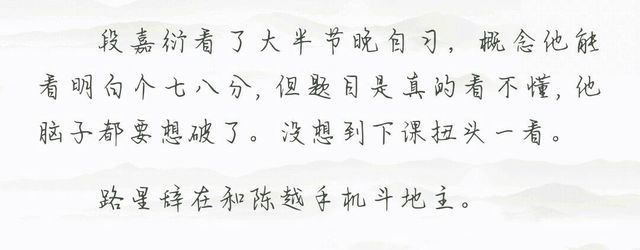 段嘉衍看了大半节晚自习，概念他能
看明白个七八分，但题目是真的看不懂，他
脑子都要想破了。没想到下课扭头一看。
路星辞在和陈越手机斗地主。